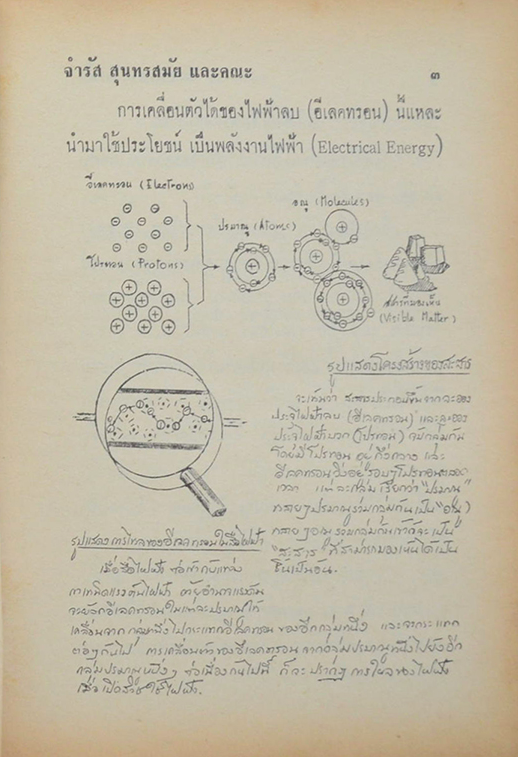 จำรัส สุนทรสมัย และคณะ
๓
การเคลื่อนตัวได้ของไฟฟ้าลบ (อีเลคทรอน) นี้แหละ
นำมาใช้ประโยชน์ เป็นพลังงานไฟฟ้า (Electrical Energy)
อีเลคทรอน (Electrons)
โปรตอน (Protons)
ปรมาณู (Atoms)
อณู (Molecules)
สสารที่มองเห็น
(Visible Matter)
รูปแสดงโครงสร้างของสะสาร
จะเห็นว่า สะสารประกอบขึ้นจากละออง
ประจุไฟฟ้าลบ (อีเลคทรอน) และละออง
ประจุไฟฟ้าบวก (โปรทอน) จับกลุ่มกัน
โดยมีโปรทอน อยู่กึ่งกลาง และ
อีเลคทรอนวิ่งอยู่รอบๆโปรทอนตลอด
เวลา แต่ละกลุ่ม เรียกว่า "ปรมาณู"
หลายๆปรมาณูรวมกลุ่มกันเป็น "อณู"
หลายๆอณู รวมกลุ่มกันเข้าก็จะเป็น
"สะสาร" ที่สามารถมองเห็นได้เป็น
ชิ้นเป็นอัน.
รูปแสดงการไหลของอีเลคทรอนในสื่อไฟฟ้า
เมื่อสื่อไฟฟ้า ต่อเข้ากับแหล่ง
กำเนิดแรงดันไฟฟ้า ด้วยอำนาจแรงดัน
จะผลักอีเลคทรอนในแต่ละปรมาณูให้
เคลื่อนจาก กลุ่มหนึ่งไปกระแทกอีเล็คทรอน ของอีกกลุ่มหนึ่ง และจะกระแทก
ต่อๆกันไป การเคลื่อนที่ของอีเลคทรอน จากกลุ่มปรมาณูหนึ่งไปยังอีก
กลุ่มปรมาณูหนึ่งๆ ต่อเนื่องกันไปนี้ ก็จะ ปรากฏ การไหลของไฟฟ้า
เมื่อ เปิดสวิชใช้ไฟฟ้า.